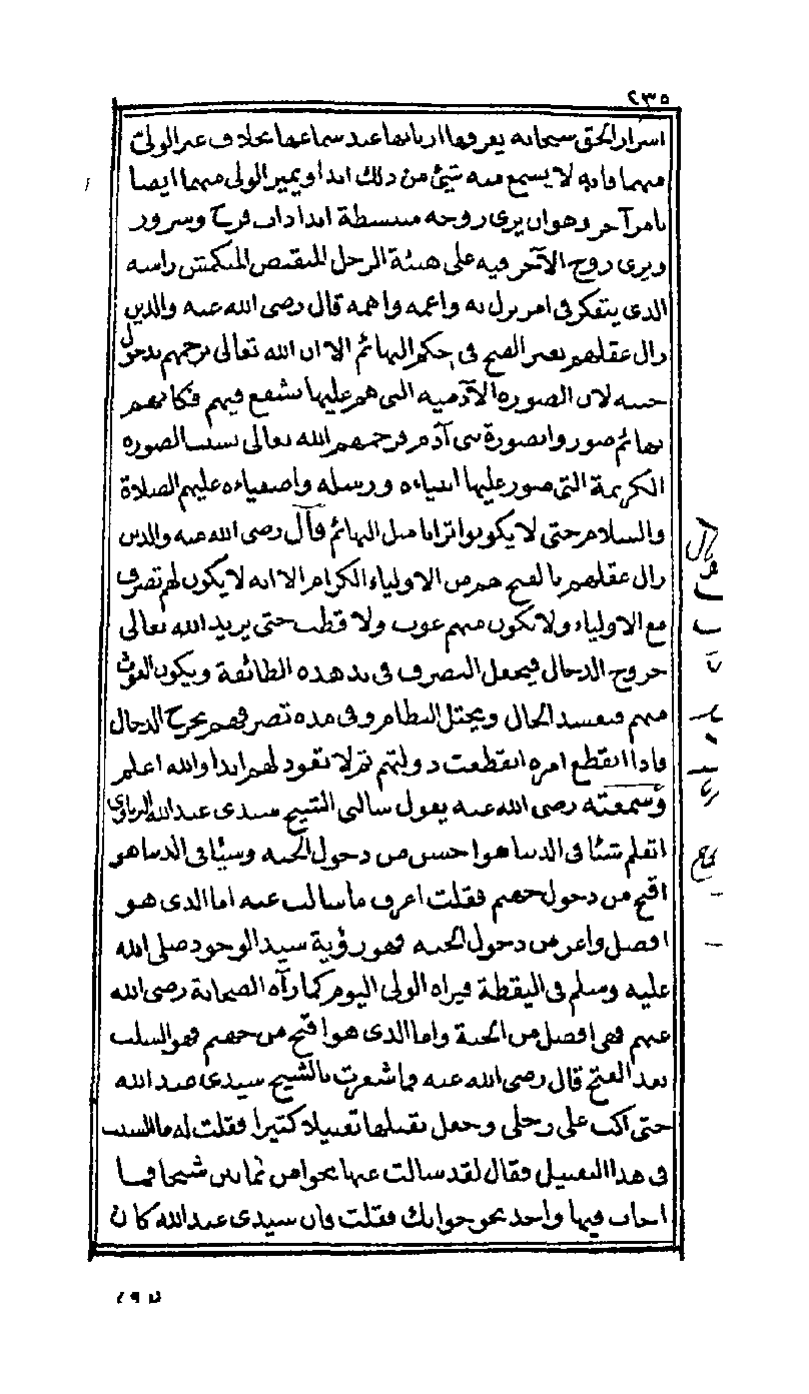 ٢٣٥
اسرار الحق سبحانه يعرفها اربابها عند سماعها بخلاف غير الولي
منهما فانه لا يسمع منه شيئ من ذلك ابدا ويميز الولي منهما ايضا
بامر آخر وهو ان يرى روحه منبسطة ابدا ذات فرح وسرور
ويرى روح الآخر فيه على هيئة الرجل المنقبض المنكمش راسه
الذي يتفكر في امر نزل به واغمه واهمه قال رضي الله عنه والذين
زال عقلهم بغير الفتح في حكم البهائم الا ان الله تعالى يرحمهم بدخول
جنته لان الصورة الآدمية التي هم عليها تشفع فيهم فكانهم
بهائم صوروا بصورة بني آدم فرحمهم الله تعالى بسبب الصورة
الكريمة التي صور عليها انبياءه ورسله واصفياءه عليهم الصلاة
والسلام حتى لا يكونوا ترابا مثل البهائم قال رضي الله عنه والذين
زال عقلهم بالفتح هم من الاولياء الكرام الا انه لا يكون لهم تصرف
مع الاولياء ولا يكون منهم غوث ولا قطب حتى يريد الله تعالى
خروج الدجال فيجعل التصرف في يد هذه الطائفة ويكون الغوث
منهم فيفسد الحال ويختل النظام وفي مدة تصرفهم يخرج الدجال
فاذا انقطع امره انقطعت دولتهم ثم لا تعود لهم ابدا والله اعلم
وسمعته رضي الله عنه يقول سالني الشيخ سيدي عبد الله البرناوي
اتعلم شيئا في الدنيا هو احسن من دخول الجنة وشيئا في الدنيا هو
اقبح من دخول جهنم فقلت اعرف ما سالت عنه اما الذي هو
افضل واعز من دخول الجنة فهو رؤية سيد الوجود صلى الله
عليه وسلم في اليقظة فيراه الولي اليوم كما رآه الصحابة رضي الله
عنهم فهي افضل من الجنة واما الذي هو اقبح من جهنم فهو السلب
بعد الفتح قال رضي الله عنه فما شعرت بالشيخ سيدي عبد الله
حتى اكب على رجلي وجعل يقبلها تقبيلا كثيرا فقلت له ما السبب
في هذا التقبيل فقال لقد سالت عنها نحوا من ثمانين شيخا فما
اجاب فيها واحد نحو جوابك فقلت فان سيدي عبد الله كان